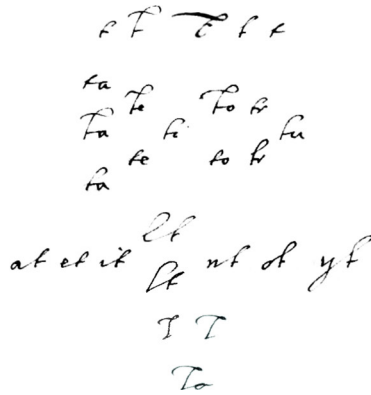 t T T t t
ta
Te To tr
Ta ti tu
te to tr
ta
lt
at et it nt ot yt
lt
T T
To